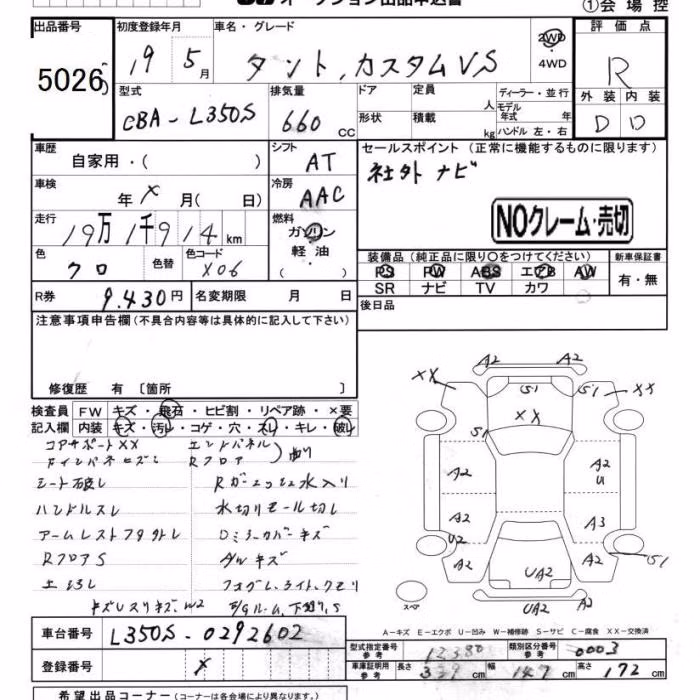 オークション出品申込書
①会場控
出品番号 初度登録年月 車名・グレード 評価点
5026 19 5月 タント、カスタムVS 2WD・4WD R
型式 排気量 ドア 定員 人 ディーラー・並行 外装 内装
CBA-L350S 660 cc 形状 積載 kg モデル年式 年 ハンドル 左・右 D D
車歴 自家用・( ) シフト AT セールスポイント (正常に機能するものに限ります)
車検 年 × 月( 日) 冷房 AAC 社外ナビ
走行 19万1千914km 燃料 ガソリン 軽油・( )
NOクレーム・売切
色 クロ 色替 色コード X06
装備品 (純正品に限り○をつけてください) 新車保証書
PS PW ABS エアB AW 有・無
SR ナビ TV カワ
R券 9.430円 名変期限 月 日 後日品
注意事項申告欄 (不具合内容等は具体的に記入して下さい)
修復歴 有 [箇所 ]
検査員 FW キズ・飛石・ヒビ割・リペア跡・×要
記入欄 内装 キズ・汚レ・コゲ・穴・スレ・キレ・破レ
コアサポートXX エンドパネル
Rフロア
シート破レ 水入り
ハンドルスレ 水切リモール切レ
アームレストフタ外レ Dミラーカバーキズ
RフロアS AWキズ
フォグL、ライト、クモリ
A2 A2
XX S1 S1 XX
XX
S1
A2 A2
U
A2 A3
U2
A2 A2 S1
UA2
UA2 A2
スペア
A-キズ E-エクボ U-凹み W-補修跡 S-サビ C-腐食 XX-交換済
車台番号 L350S-0292602
型式指定番号 参考 12380 類別区分番号 参考 0003
登録番号 × 車庫証明用 参考 長さ 339cm 幅 147cm 高さ 172cm
希望出品コーナー (コーナーは各会場により異なります。)